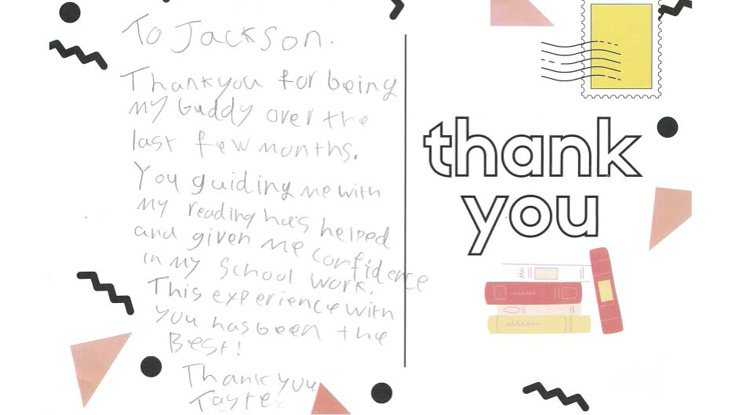 To Jackson.
Thankyou for being
my buddy over the
last few months.
You guiding me with
my reading has helped
and given me confidence
in my school work.
This experience with
you has been the
Best!
Thank you
thank
you